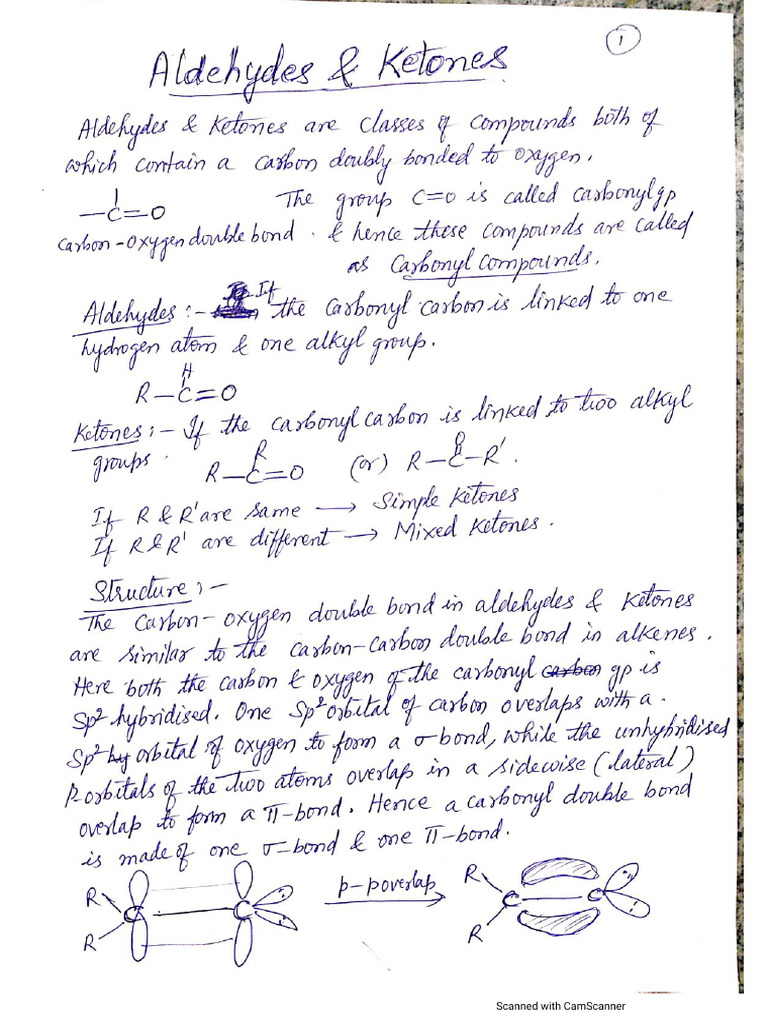 1
Aldehydes & Ketones
Aldehydes & Ketones are classes of compounds both of
which contain a carbon doubly bonded to oxygen.
—C=O The group C=O is called carbonyl gp
carbon-oxygen double bond. & hence these compounds are called
as Carbonyl compounds.
Aldehydes :- If the carbonyl carbon is linked to one
hydrogen atom & one alkyl group.
H
R—C=O
Ketones :- If the carbonyl carbon is linked to two alkyl
groups.
R O
R—C=O (or) R—C—R'.
If R & R' are same → Simple Ketones
If R & R' are different → Mixed Ketones.
Structure :-
The Carbon-oxygen double bond in aldehydes & Ketones
are similar to the carbon-carbon double bond in alkenes.
Here both the carbon & oxygen of the carbonyl carbon gp is
Sp² hybridised. One Sp² orbital of carbon overlaps with a
Sp² hy orbital of oxygen to form a σ bond, while the unhybridised
p-orbitals of the two atoms overlap in a sidewise (lateral)
overlap to form a π-bond. Hence a carbonyl double bond
is made of one σ-bond & one π-bond.
R C C p-p overlap R C C
R R
Scanned with CamScanner